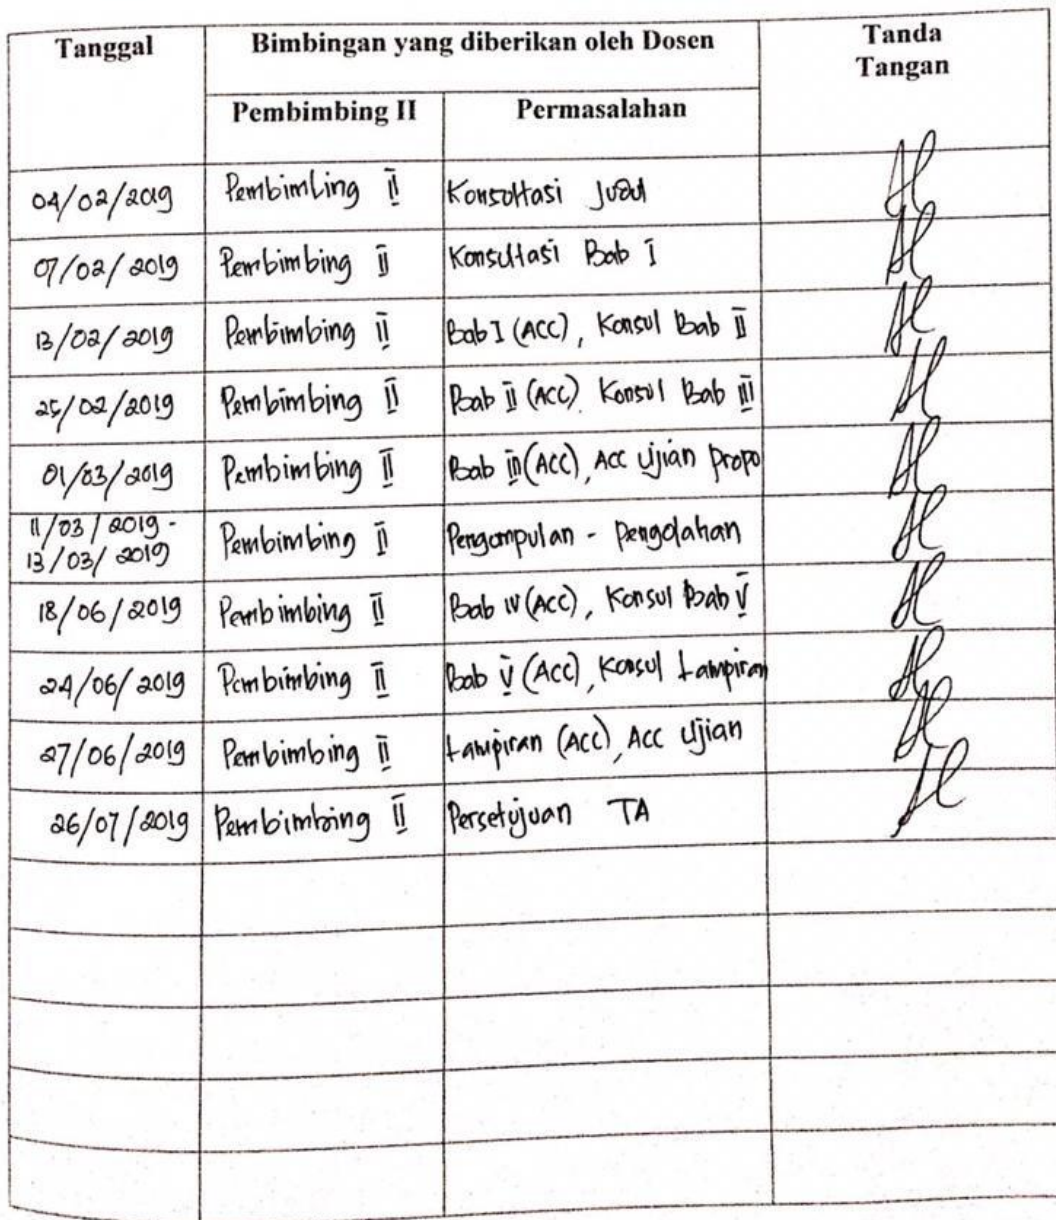 Tanggal Bimbingan yang diberikan oleh Dosen Tanda
Tangan
Pembimbing II Permasalahan
04/02/2019 Pembimbing II Konsultasi Judul
07/02/2019 Pembimbing II Konsultasi Bab I
13/02/2019 Pembimbing II Bab I (ACC), Konsul Bab II
25/02/2019 Pembimbing II Bab II (ACC) Konsul Bab III
01/03/2019 Pembimbing II Bab III (ACC), Acc Ujian propo
11/03/2019 -
13/03/2019 Pembimbing II Pengumpulan - Pengolahan
18/06/2019 Pembimbing II Bab IV (ACC), Konsul Bab V
24/06/2019 Pembimbing II Bab V (ACC), Konsul Lampiran
27/06/2019 Pembimbing II Lampiran (ACC), Acc Ujian
26/07/2019 Pembimbing II Persetujuan TA